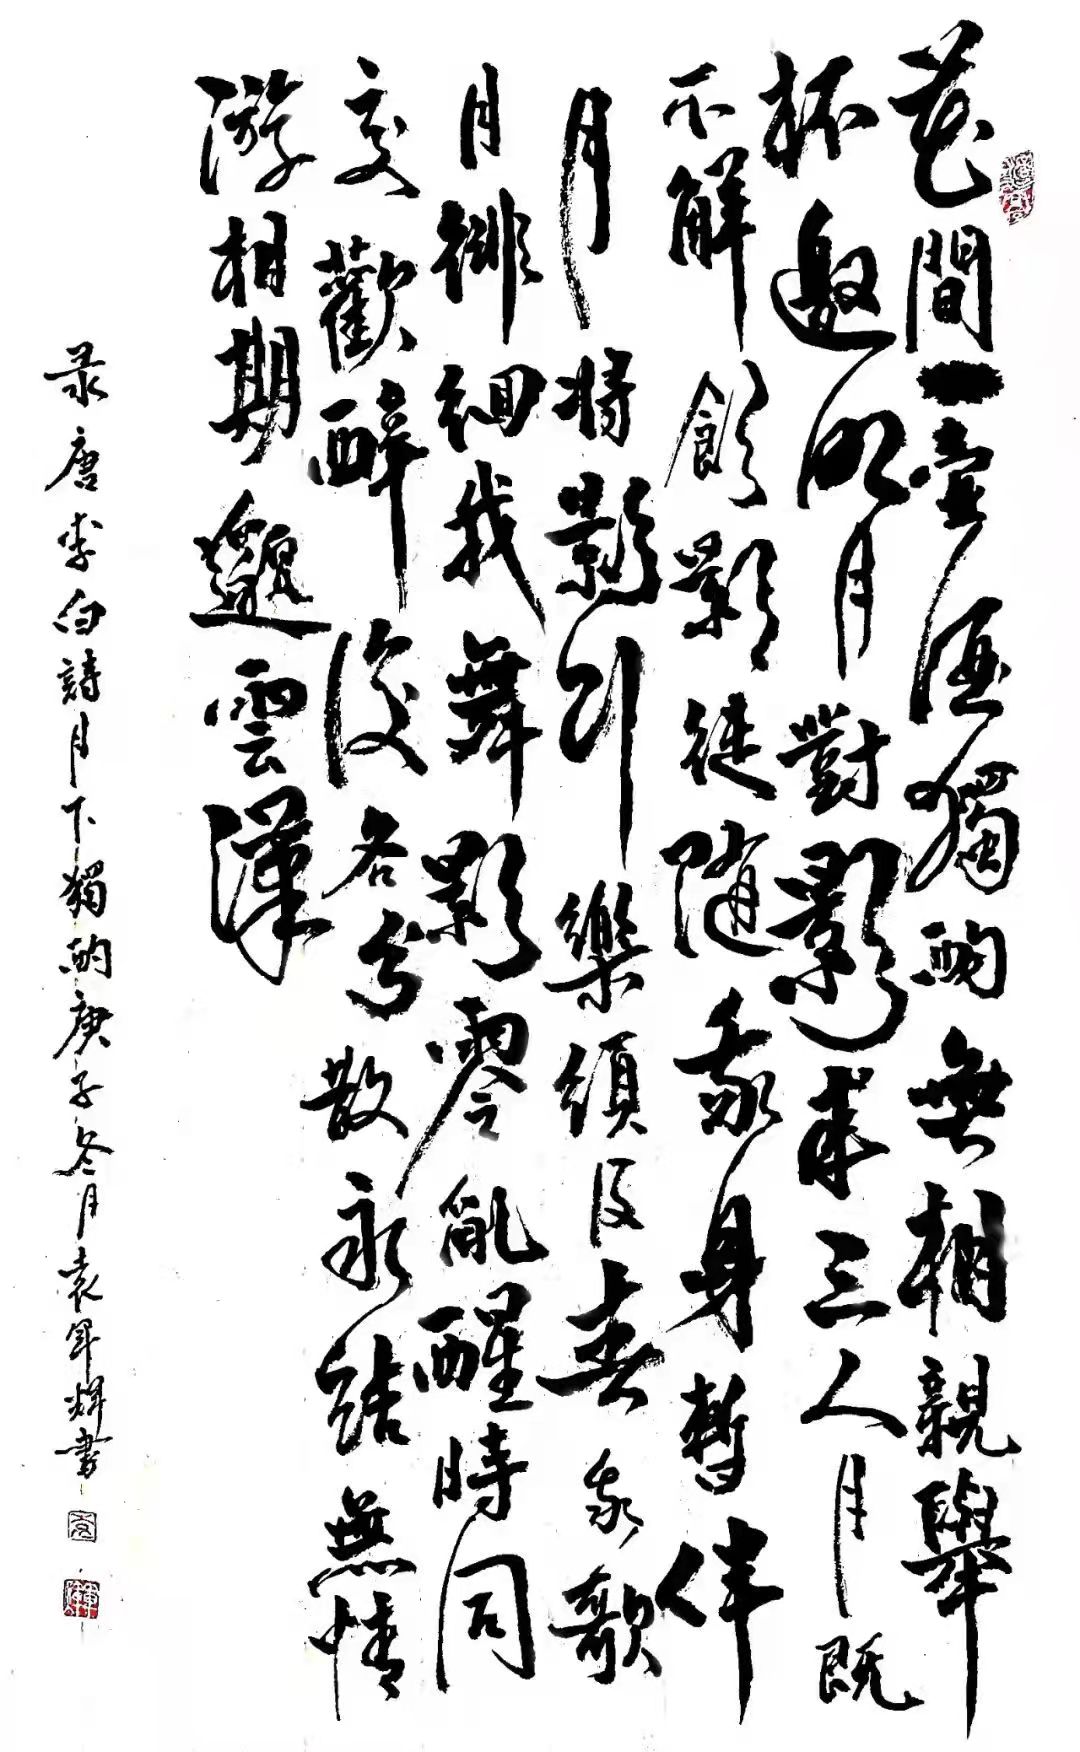 花間一壺酒獨酌無相親舉
杯邀明月對影成三人月既
不解飲影徒隨我身暫伴
月將影行樂須及春我歌
月徘徊我舞影零亂醒時同
交歡醉後各分散永結無情
游相期邈雲漢
录唐李白詩月下獨酌庚子冬月袁軍輝書